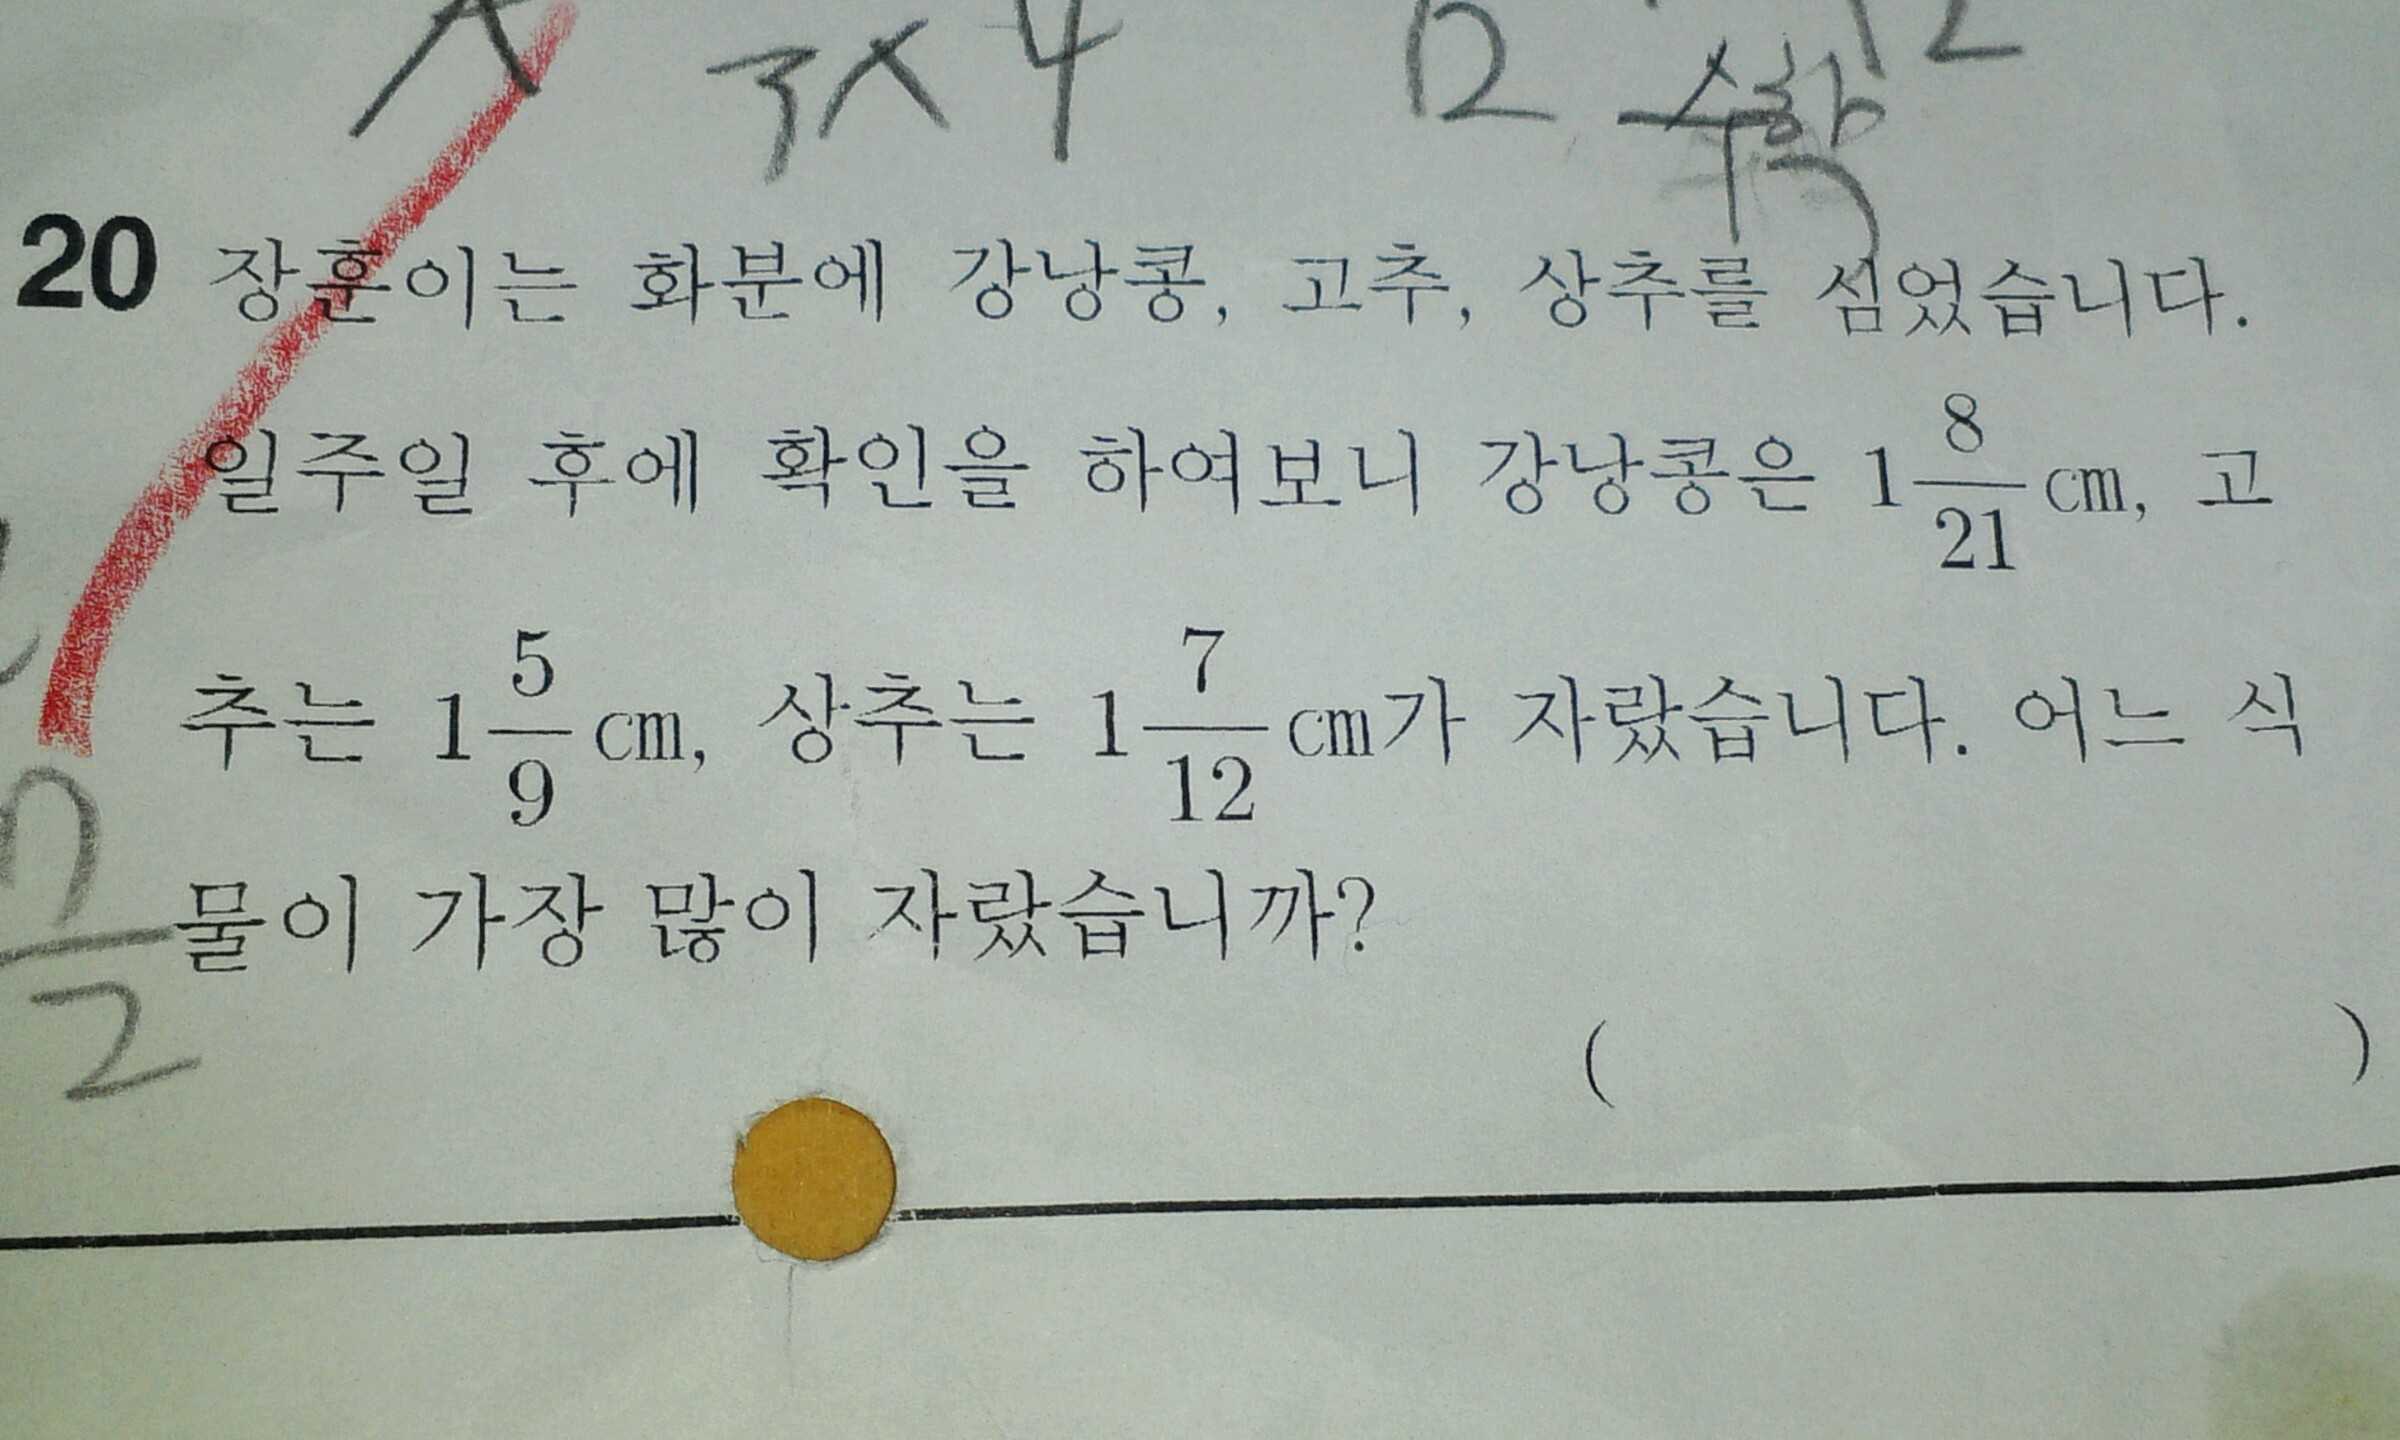 3×4 12
수학
20 장훈이는 화분에 강낭콩, 고추, 상추를 심었습니다.
일주일 후에 확인을 하여보니 강낭콩은 1 8/21 cm, 고
추는 1 5/9 cm, 상추는 1 7/12 cm가 자랐습니다. 어느 식
물이 가장 많이 자랐습니까?
( )
7
2